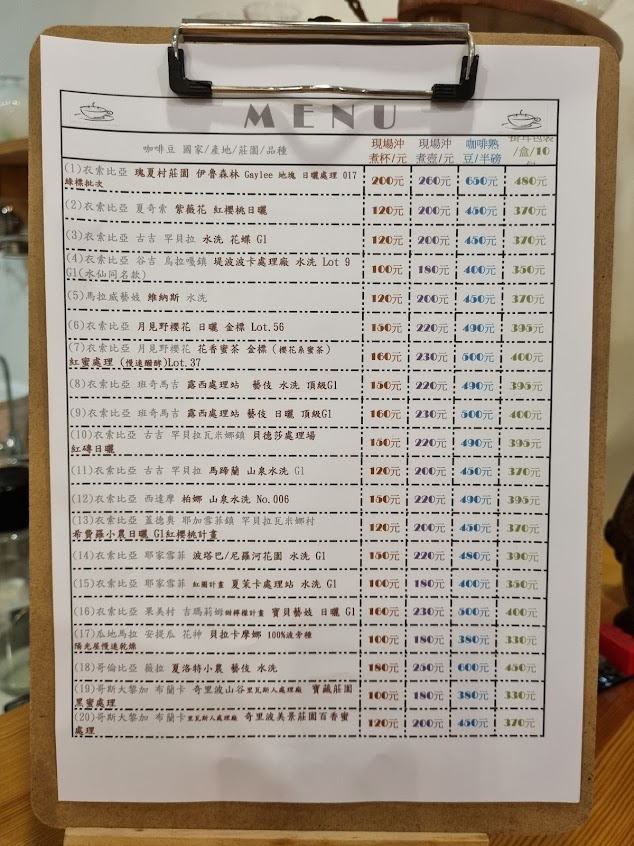 MENU
咖啡豆 國家/產地/莊園/品種 現場沖煮杯/元 現場沖煮壺/元 咖啡熟豆/半磅 /盒/10
(1)衣索比亞 瑰夏村莊園 伊魯森林 Gaylee 地塊 日曬處理 017 200元 260元 650元 480元
綠標批次
(2)衣索比亞 夏奇索 紫薇花 紅櫻桃日曬 120元 200元 450元 370元
(3)衣索比亞 古吉 罕貝拉 水洗 花蝶 G1 120元 200元 450元 370元
(4)衣索比亞 谷吉 烏拉嘎鎮 堤波波卡處理廠 水洗 Lot 9 100元 180元 400元 350元
G1(水仙同名款)
(5)馬拉威藝妓 維納斯 水洗 120元 200元 450元 370元
(6)衣索比亞 月見野櫻花 日曬 金標 Lot.56 150元 220元 490元 395元
(7)衣索比亞 月見野櫻花 花香蜜茶 金標 (櫻花系蜜茶) 160元 230元 500元 400元
紅蜜處理 (慢速醱酵)Lot.37
(8)衣索比亞 班奇馬吉 露西處理站 藝伎 水洗 頂級G1 150元 220元 490元 395元
(9)衣索比亞 班奇馬吉 露西處理站 藝伎 日曬 頂級G1 160元 230元 500元 400元
(10)衣索比亞 古吉 罕貝拉瓦米娜鎮 貝德莎處理場 150元 220元 490元 395元
紅磚日曬
(11)衣索比亞 古吉 罕貝拉 馬蹄蘭 山泉水洗 G1 120元 200元 450元 370元
(12)衣索比亞 西達摩 柏娜 山泉水洗 No.006 150元 220元 490元 395元
(13)衣索比亞 蓋德奧 耶加雪菲鎮 罕貝拉瓦米娜村 120元 200元 450元 370元
希費羅小農日曬 G1紅櫻桃計畫
(14)衣索比亞 耶家雪菲 波塔巴/尼羅河花園 水洗 G1 150元 220元 480元 390元
(15)衣索比亞 耶家雪菲 紅圈計畫 夏茉卡處理站 水洗 G1 100元 180元 400元 350元
(16)衣索比亞 果美村 吉瑪莉姆甜檸檬計畫 寶貝藝妓 日曬 G1 160元 230元 500元 400元
(17)瓜地馬拉 安提瓜 花神 貝拉卡摩娜 100%波旁種 100元 180元 380元 330元
陽光屋慢速乾燥
(18)哥倫比亞 薇拉 夏洛特小農 藝伎 水洗 180元 250元 600元 450元
(19)哥斯大黎加 布蘭卡 奇里波山谷里瓦斯人處理廠 寶藏莊園 100元 180元 380元 330元
黑蜜處理
(20)哥斯大黎加 布蘭卡里瓦斯人處理廠 奇里波美景莊園百香蜜 120元 200元 450元 370元
處理